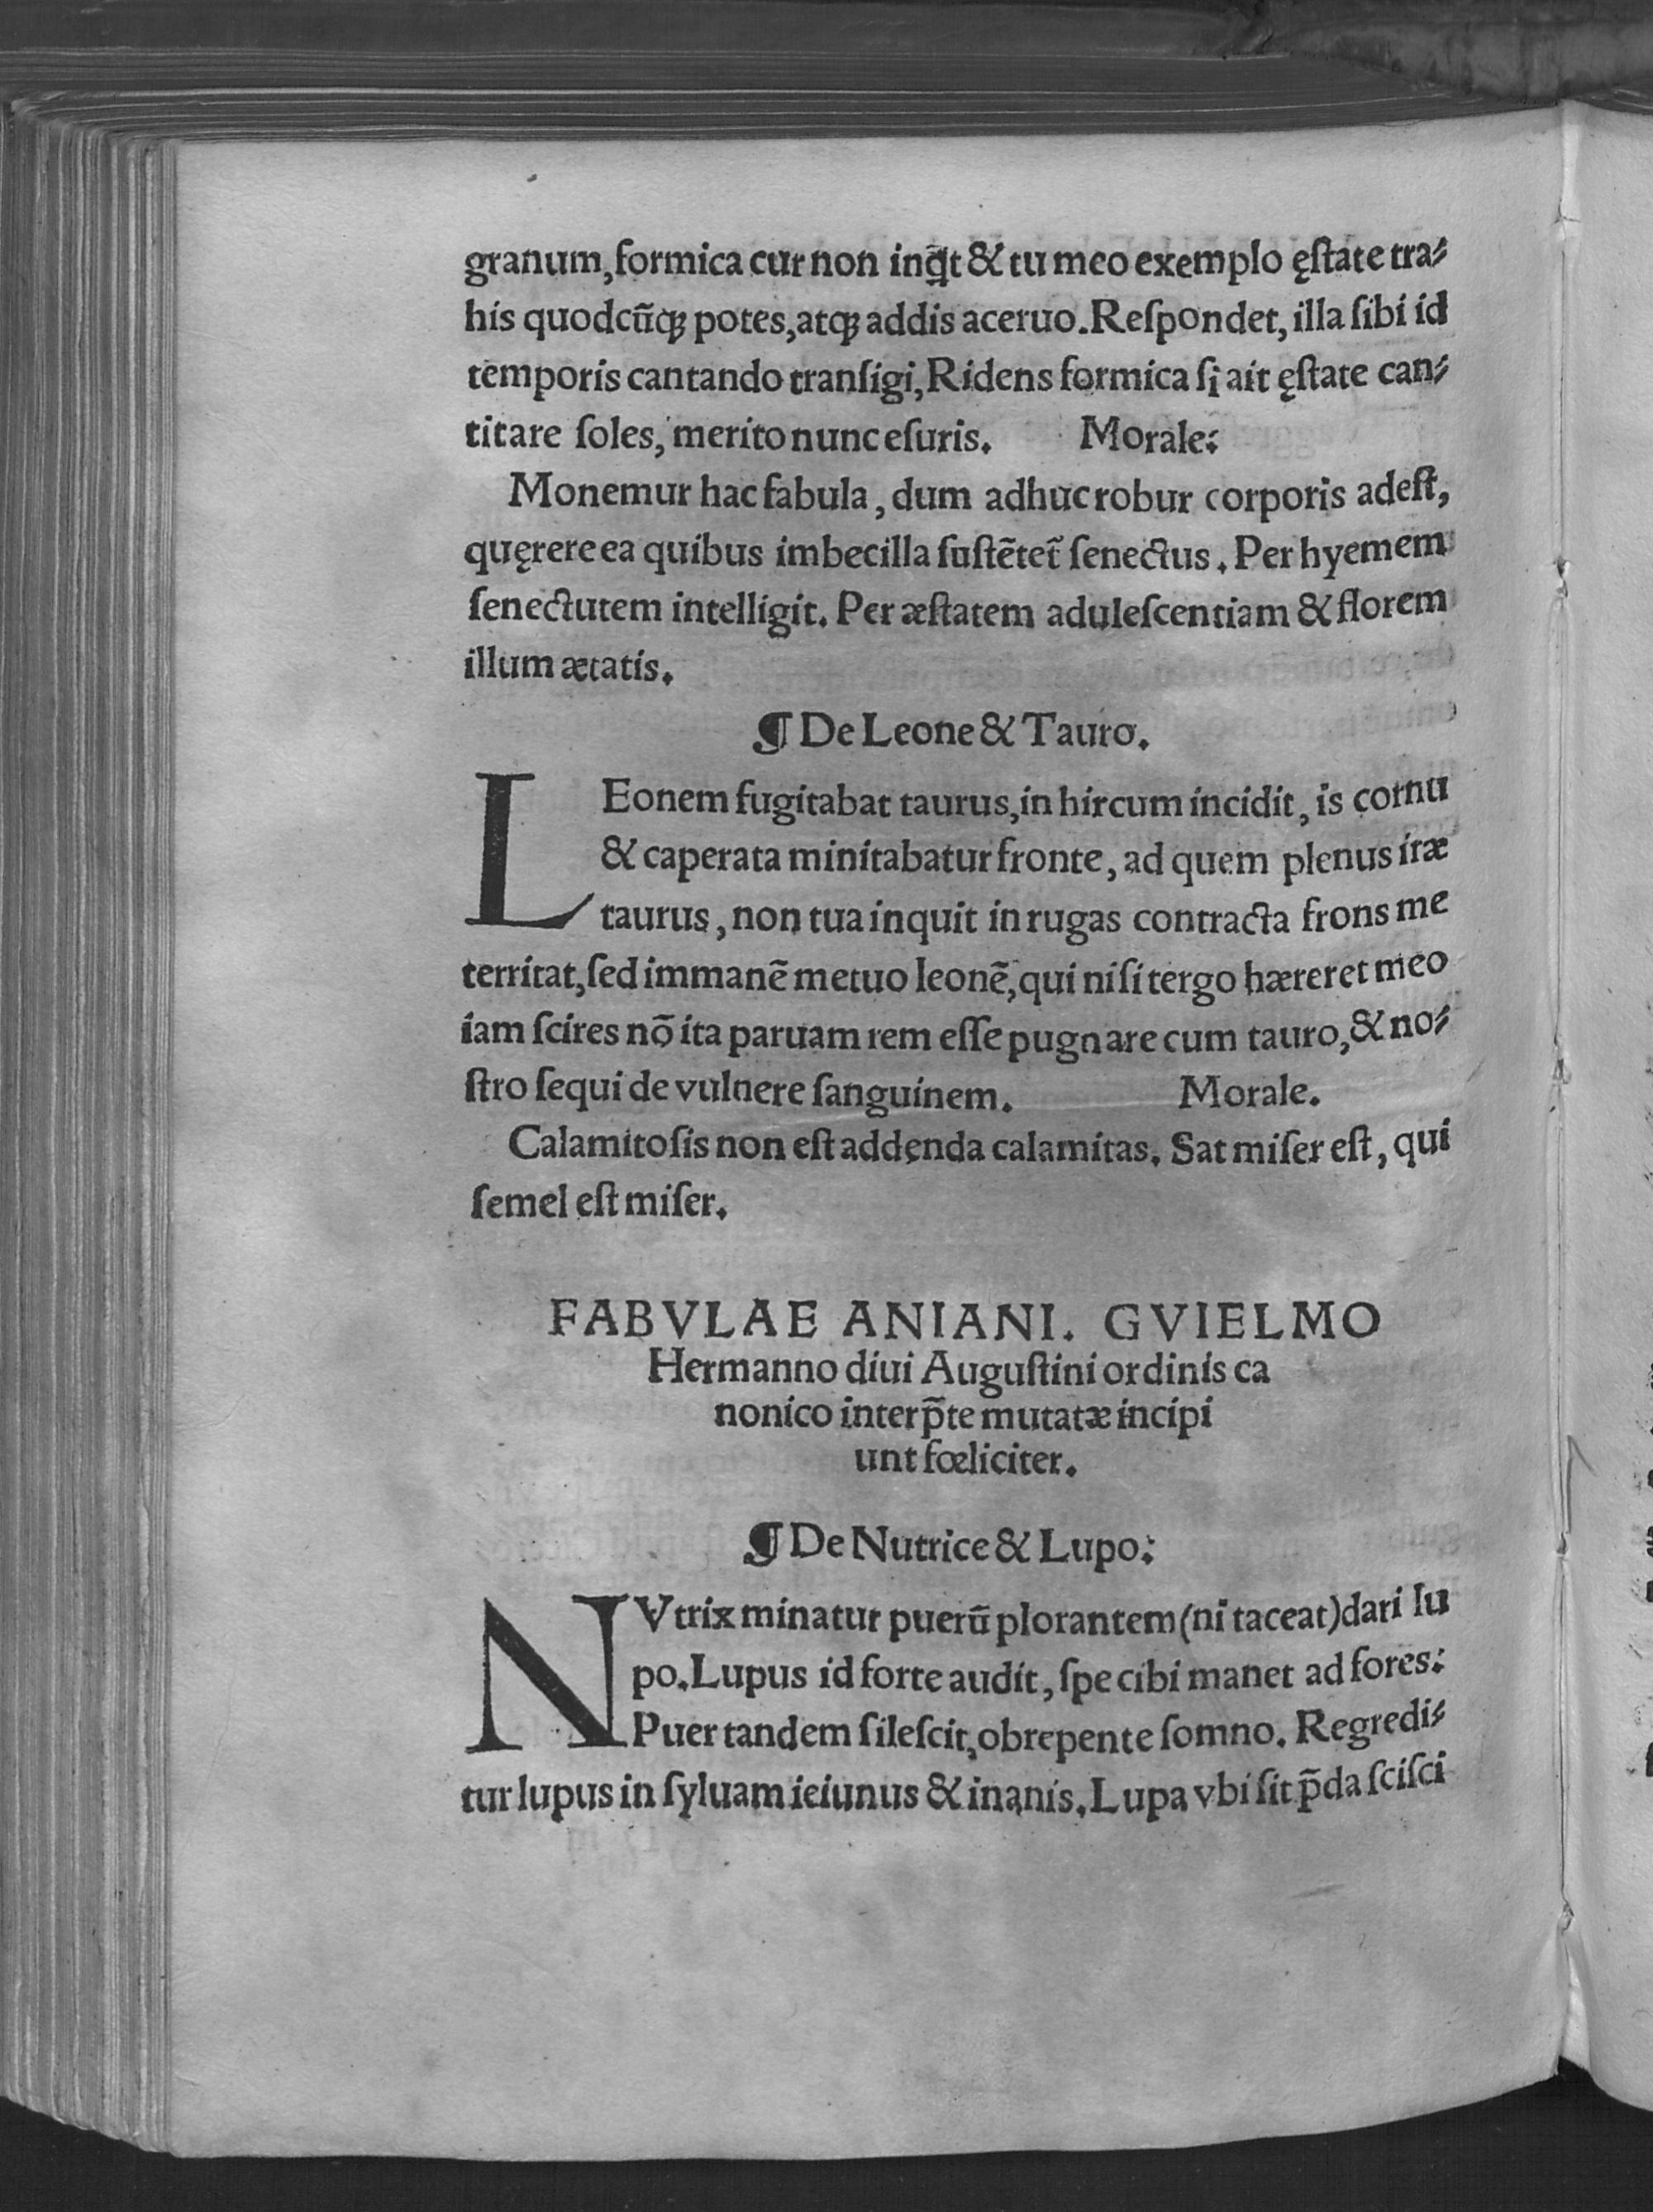 granum, formica cur non inq̃t & tu meo exemplo ęſtate tra⸗
his quodcũq; potes, atq; addis aceruo. Reſpondet, illa ſibi id
temporis cantando tranſigi, Ridens formica ſi ait ęſtate can⸗
titare ſoles, merito nunc eſuris. Morale:
Monemur hac fabula, dum adhuc robur corporis adeſt,
quęrere ea quibus imbecilla ſuſtẽtet᷑ ſenectus. Per hyemem
ſenectutem intelligit. Per æſtatem aduleſcentiam & florem
illum ætatis.
¶ De Leone & Tauro.
LEonem fugitabat taurus, in hircum incidit, is cornu
& caperata minitabatur fronte, ad quem plenus iræ
taurus, non tua inquit in rugas contracta frons me
territat, ſed immanẽ metuo leonẽ, qui niſi tergo hæreret meo
iam ſcires nõ ita paruam rem eſſe pugnare cum tauro, & no⸗
ſtro ſequi de vulnere ſanguinem. Morale.
Calamitoſis non eſt addenda calamitas. Sat miſer eſt, qui
ſemel eſt miſer.
FABVLAE ANIANI. GVIELMO
Hermanno diui Auguſtini ordinis ca
nonico interp̃te mutatæ incipi
unt fœliciter.
¶ De Nutrice & Lupo:
NVtrix minatur puerũ plorantem (ni taceat) dari lu
po. Lupus id forte audit, ſpe cibi manet ad fores:
Puer tandem ſileſcit, obrepente ſomno. Regredi⸗
tur lupus in ſyluam ieiunus & inanis. Lupa vbi ſit p̃da ſciſci